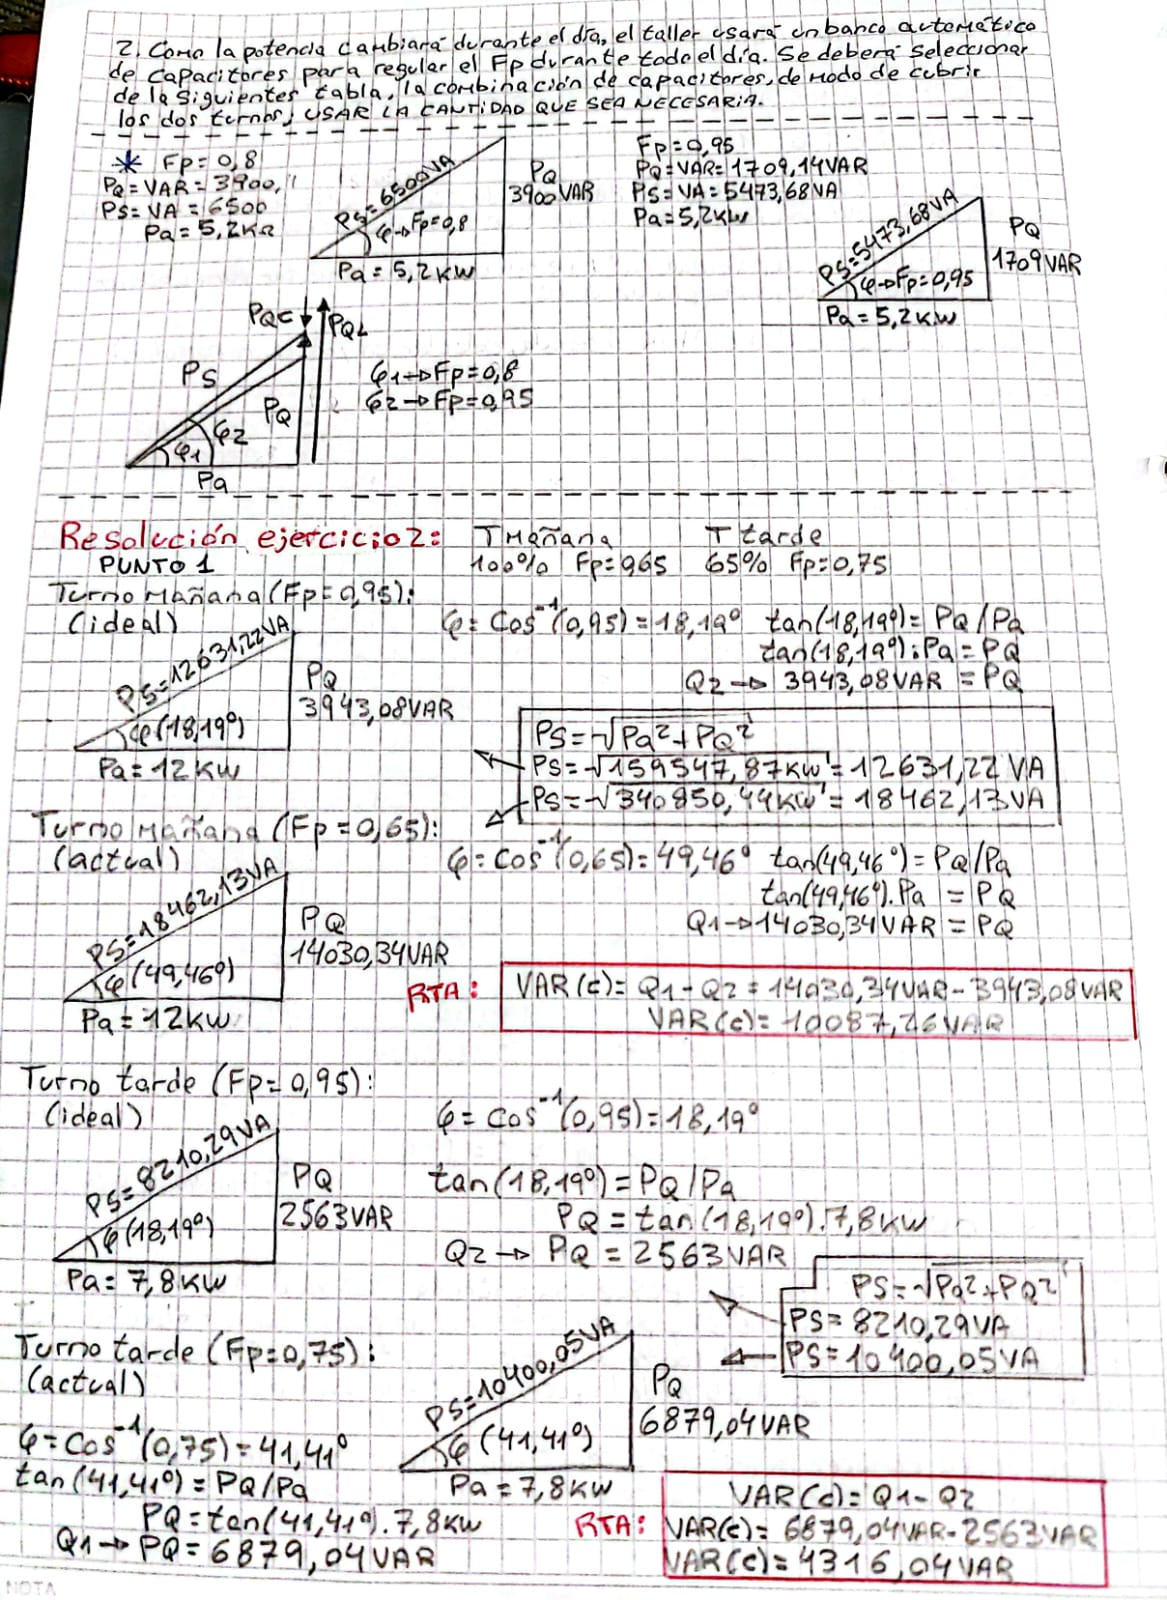 2. Como la potencia cambiará durante el día, el taller usará un banco automático
de capacitores para regular el Fp durante todo el día. Se deberá seleccionar
de la siguientes tabla, la combinación de capacitores, de modo de cubrir
los dos turnos, USAR LA CANTIDAD QUE SEA NECESARIA.
* Fp=0,8
PQ=VAR=3900,
PS=VA=6500
Pa=5,2KΩ
PS=6500VA
φ→Fp=0,8
PQ
3900VAR
Pa=5,2KW
Fp=0,95
PQ=VAR=1709,14VAR
PS=VA=5473,68VA
Pa=5,2KW
PS=5473,68VA
φ→Fp=0,95
PQ
1709VAR
Pa=5,2KW
PQC
PQL
PS
PQ
φ2
φ1
Pa
φ1→Fp=0,8
φ2→Fp=0,95
Resolución ejercicio 2: T Mañana T tarde
PUNTO 1 100% Fp=0,65 65% Fp=0,75
Turno mañana (Fp=0,95):
(ideal)
PS=12631,22VA
φ(18,19°)
PQ
3943,08VAR
Pa=12KW
φ=Cos⁻¹(0,95)=18,19° tan(18,19°)=PQ/Pa
tan(18,19°).Pa=PQ
Q2→3943,08VAR=PQ
PS=√Pa²+PQ²
PS=√159547,87KW=12631,22VA
PS=√340850,44KW=18462,13VA
Turno Mañana (Fp=0,65):
(actual)
PS=18462,13VA
φ(49,46°)
PQ
14030,34VAR
Pa=12KW
φ=cos⁻¹(0,65)=49,46° tan(49,46°)=PQ/Pa
tan(49,46°).Pa=PQ
Q1→14030,34VAR=PQ
RTA: VAR(c)=Q1-Q2=14030,34VAR-3943,08VAR
VAR(c)=10087,26VAR
Turno tarde (Fp=0,95):
(ideal)
PS=8210,29VA
φ(18,19°)
PQ
2563VAR
Pa=7,8KW
φ=cos⁻¹(0,95)=18,19°
tan(18,19°)=PQ/Pa
PQ=tan(18,19°).7,8KW
Q2→PQ=2563VAR
PS=√Pa²+PQ²
PS=8210,29VA
PS=10400,05VA
Turno tarde (Fp=0,75):
(actual)
PS=10400,05VA
φ(41,41°)
PQ
6879,04VAR
Pa=7,8KW
φ=cos⁻¹(0,75)=41,41°
tan(41,41°)=PQ/Pa
PQ=tan(41,41°).7,8KW
Q1→PQ=6879,04VAR
VAR(c)=Q1-Q2
RTA: VAR(c)=6879,04VAR-2563VAR
VAR(c)=4316,04VAR
NOTA